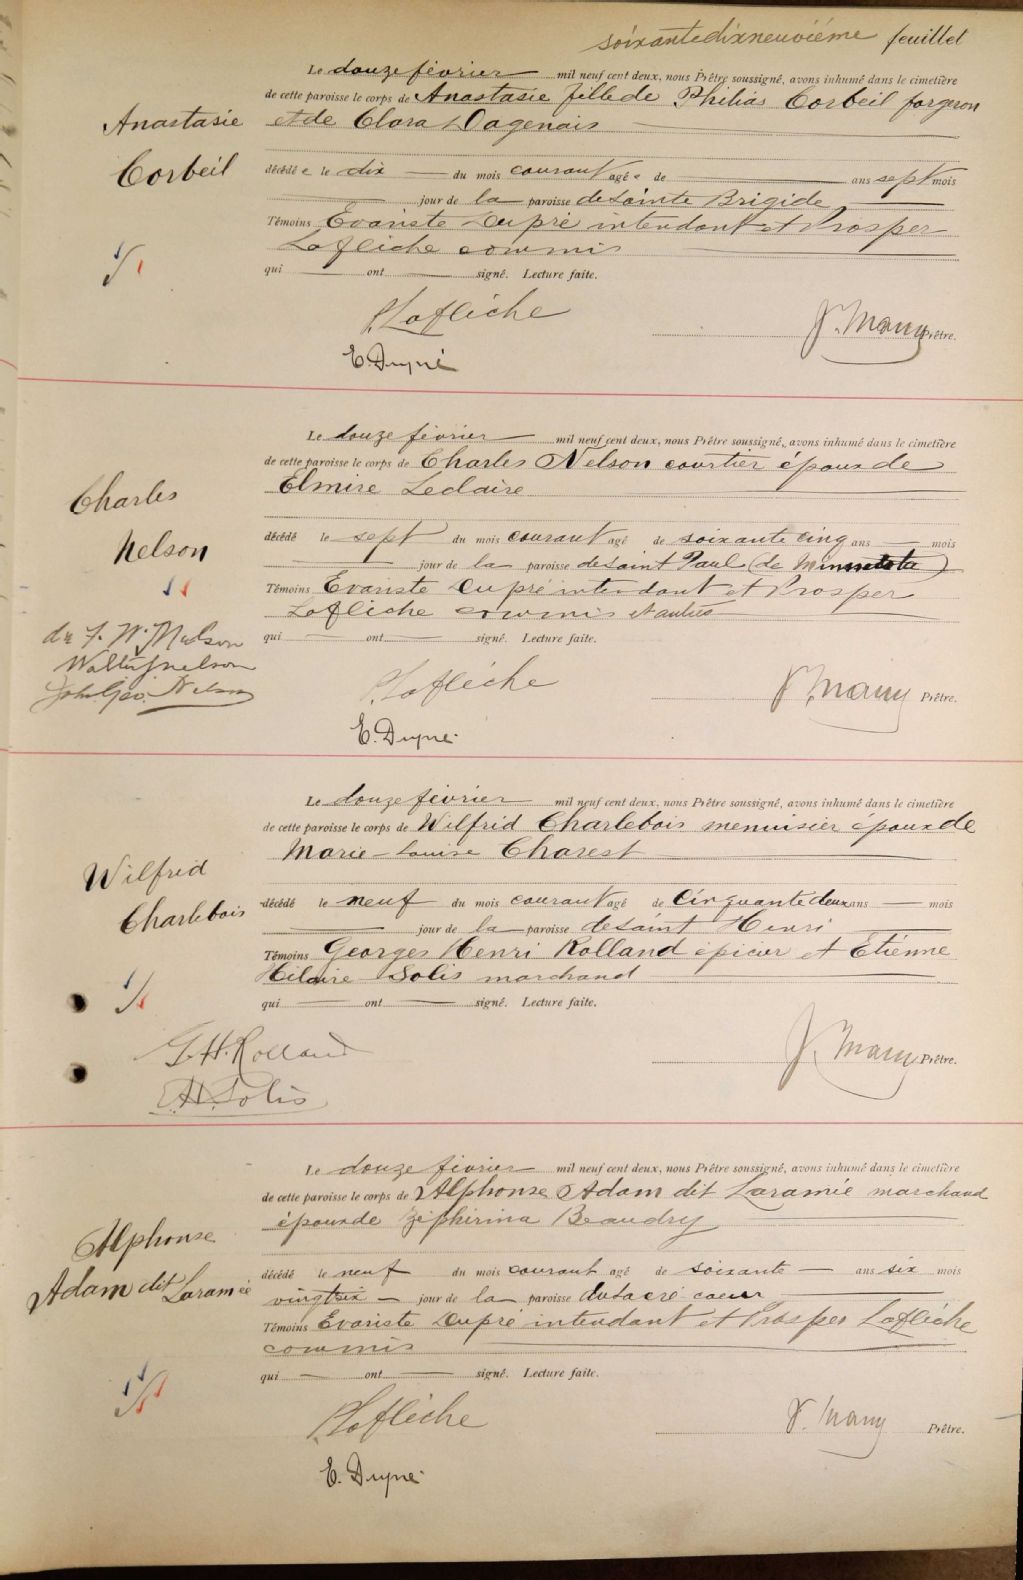 soixante dix neuvième feuillet
Le douze février mil neuf cent deux, nous Prêtre soussigné, avons inhumé dans le cimetière
de cette paroisse le corps de Anastasie fille de Philias Corbeil forgeron
Anastasie et de Clara Dagenais
Corbeil décédée le dix du mois courant agée de ans sept mois
jour de la paroisse de Sainte Brigide
Témoins Evariste Dupré intendant et Prosper
Laflèche commis
qui ont signé. Lecture faite.
P. Laflèche
J. Many Prêtre.
E. Dupré
Le douze février mil neuf cent deux, nous Prêtre soussigné, avons inhumé dans le cimetière
de cette paroisse le corps de Charles Nelson courtier époux de
Charles Elmire Leclaire
Nelson décédé le sept du mois courant agé de soixante cinq ans mois
jour de la paroisse de Saint Paul (de Minnesota)
Témoins Evariste Dupré intendant et Prosper
Laflèche commis et autres
qui ont signé. Lecture faite.
dr F. W. Nelson
Walter J Nelson
John Geo. Nelson
P. Laflèche
J. Many Prêtre.
E. Dupré
Le douze février mil neuf cent deux, nous Prêtre soussigné, avons inhumé dans le cimetière
de cette paroisse le corps de Wilfrid Charlebois menuisier époux de
Marie-Louise Charest
Wilfrid
Charlebois décédé le neuf du mois courant agé de cinquante deux ans mois
jour de la paroisse de Saint Henri
Témoins Georges Henri Rolland épicier et Etienne
Hilaire Solis marchand
qui ont signé. Lecture faite.
G. H. Rolland
J. Many Prêtre.
E. H. Solis
Le douze février mil neuf cent deux, nous Prêtre soussigné, avons inhumé dans le cimetière
de cette paroisse le corps de Alphonse Adam dit Laramée marchand
époux de Zéphirina Beaudry
Alphonse
Adam dit Laramée décédé le neuf du mois courant agé de soixante ans six mois
vingt six jour de la paroisse du Sacré coeur
Témoins Evariste Dupré intendant et Prosper Laflèche
commis
qui ont signé. Lecture faite.
P. Laflèche
J. Many Prêtre.
E. Dupré